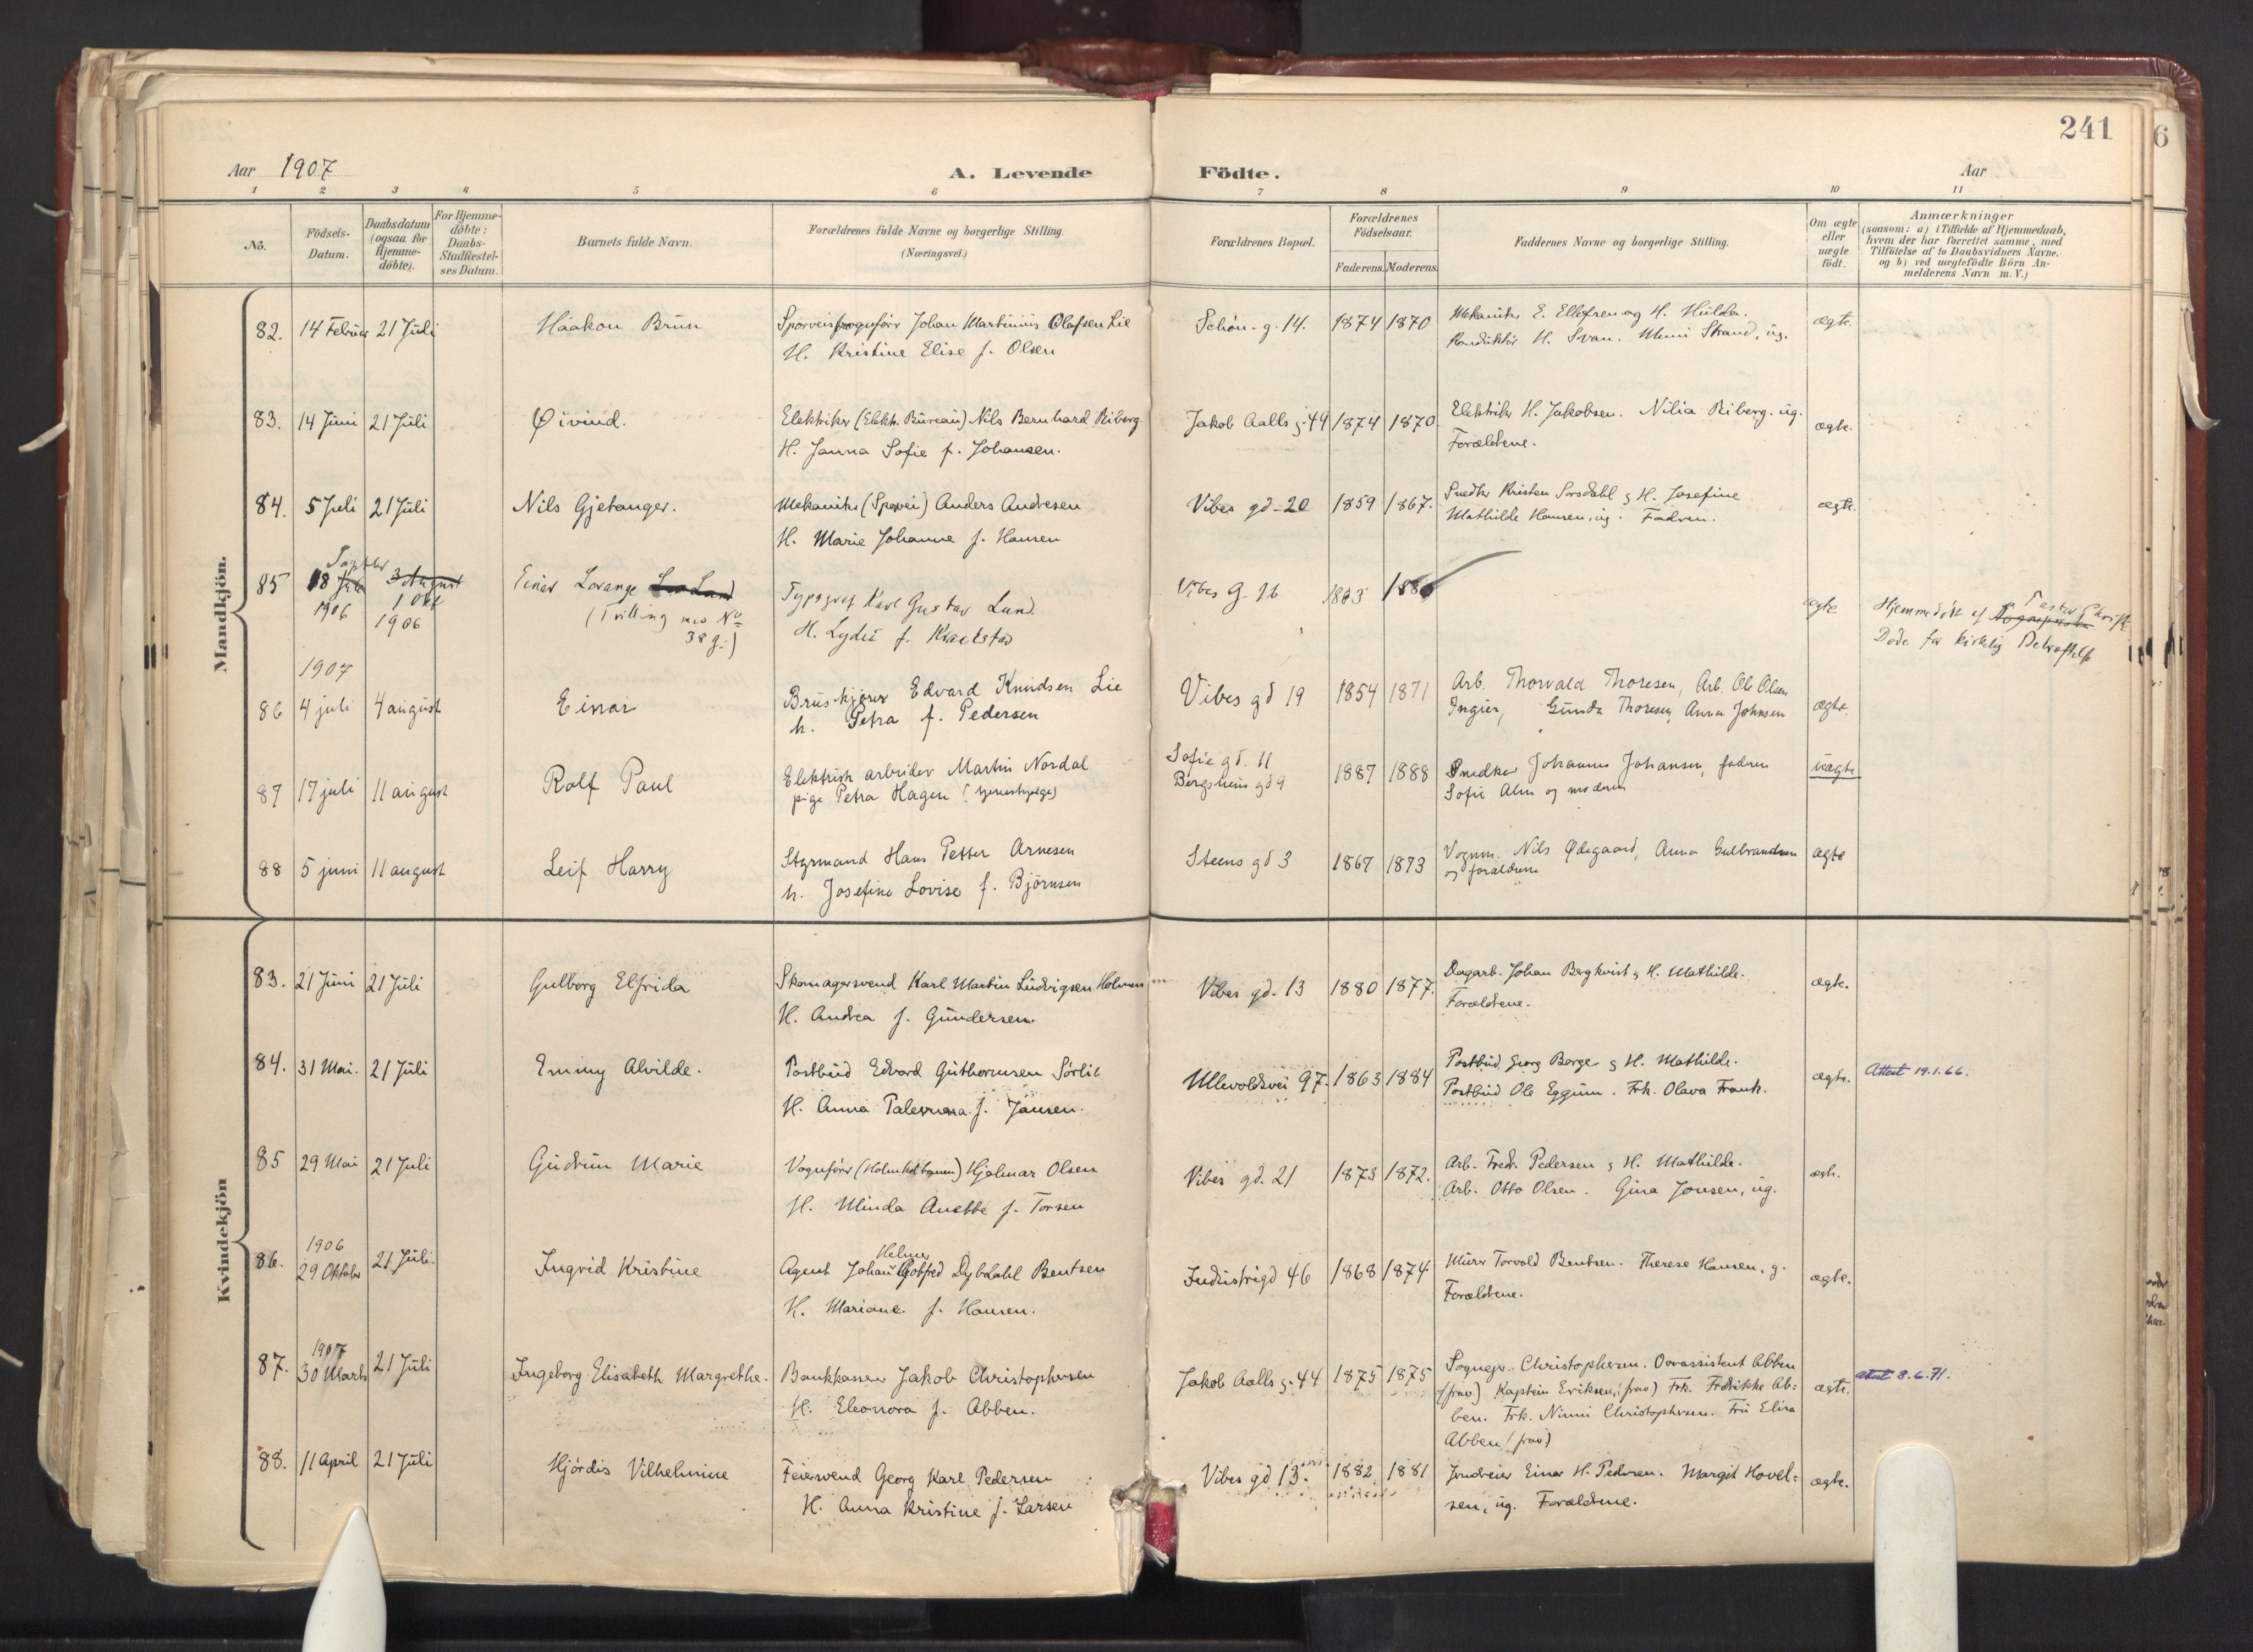 241
6
Aar 1907
A. Levende
Födte.
Aar
1 2 3 4 5 6 7 8 9 10 11
No.
Födsels-
Datum.
Daabsdatum
(ogsaa for
Hjemme-
döbte).
For Hjemme-
döbte:
Daabs-
Stadfæstel-
ses Datum.
Barnets fulde Navn.
Forældrenes fulde Navne og borgerlige Stilling.
(Næringsvei.)
Forældrenes Bopæl.
Forældrenes
Födselsaar.
Faderens. Moderens.
Faddernes Navne og borgerlige Stilling.
Om ægte
eller
uægte
födt.
Anmærkninger
(saasom: a) i Tilfælde af Hjemmedaab,
hvem der har forrettet samme, med
Tilföielse af to Daabsvidners Navne.
og b) ved uægtefödte Börn An-
melderens Navn m. V.)
Mandkjön.
82. 14 Februar 21 Juli Haakon Brun
Sporveisvognförer Johan Martinius Olafsen Lie
H. Kristine Elise f. Olsen
Schön. g. 14. 1874 1870
Mekaniker E. Ellefsen og H. Hulda.
Konduktör H. Svan. Mimi Strand, ug.
ægte.
83. 14 Juni 21 Juli Øivind.
Elektriker (Elektr. Bureau) Nils Bernhard Riberg
H. Janna Sofie f. Johansen.
Jakob Aalls g. 49 1874 1870
Elektriker H. Jakobsen. Nilia Riberg. ug.
Forældrene.
ægte.
84. 5 Juli 21 Juli Nils Gjetanger.
Mekaniker (Sporvei) Anders Andresen
H. Marie Johanne f. Hansen
Vibes gd. 20 1859 1867.
Snedker Kristen Sorsdahl & H. Josefine
Mathilde Hansen, ug. Fadren.
ægte.
85 18 Septbr 1906
3 August
1 Okt
1906
Einar Lorange Lund
(Tvilling med No
38 g.)
Typograf Karl Gustav Lund.
H. Lydia f. Kraekstad
Vibes G. 26 1883 1880
ægte
Hjemmedöbt af Pastor Schrift
Döde för kirkelig Bekræftelse
1907
86 4 juli 4 august Einar
Bruskjører Edvard Knudsen Lie
h. Petra f. Pedersen
Vibes gd 19 1854 1871
Arb. Thorvald Thoresen, Arb. Ole Olsen
Ingier, Gunda Thoresen, Anna Johnsen
ægte.
87 17 juli 11 august Rolf Paul
Elektrisk arbeider Martin Nordal
pige Petra Hagen (tjenestepige)
Sofie gd. 11
Bergsliens gd 9
1887 1888
Snedker Johannes Johansen, fadren
Sofie Alm og moderen
uægte
88 5 juni 11 august Leif Harry
Styrmand Hans Petter Arnesen
h. Josefine Lovise f. Björnsen
Steens gd 3 1867 1873
Vognm. Nils Ødegaard, Anna Gulbrandsen
og forældrene
ægte
Kvindekjön
83. 21 Juni 21 Juli Gulborg Elfrida
Skomagersvend Karl Martin Ludvigsen Holmen
H. Andrea f. Gundersen.
Vibes gd. 13 1880 1877.
Dagarb. Johan Bergkvist & H. Mathilde.
Forældrene.
ægte.
84. 31 Mai. 21 Juli Emmy Alvilde.
Postbud Edvard Guthormsen Sörlie
H. Anna Palevma f. Jansen.
Ullevoldsvei 97. 1863 1884
Postbud Georg Borge & H. Mathilde.
Postbud Ole Eggum. Frk. Olava Frank.
ægte.
Attest 19.1.66.
85 29 Mai 21 Juli Gudrun Marie
Vognförer (Holmenkolbanen) Hjalmar Olsen
H. Minda Anette f. Torsen
Vibes gd. 21 1873 1872.
Arb. Fredr. Pedersen & H. Mathilde.
Arb. Otto Olsen. Gina Jonsen, ug.
ægte.
1906
86. 29 Oktober 21 Juli. Ingrid Kristine
Helmer
Agent Johan Gotfred Dybdahl Bentsen
H. Mariane f. Hansen.
Industrigd 46 1868 1874
Murer Torvald Bentsen. Therese Hansen, g.
Forældrene.
ægte.
1907
87. 30 Marts 21 Juli Ingeborg Elisabeth Margrethe.
Bankkasserer Jakob Christophersen
H. Eleonora f. Abben.
Jakob Aalls g. 44 1875 1875
Sogneprr. Christophersen. Overassistent Abben
(frav) Kaptein Eriksen, (frav) Frk. Fredrikke Ab=
ben. Frk. Nimmi Christophersen. Fru Elisa
Abben (frav)
ægte.
attest 8.6.71.
88. 11 April 21 Juli Hjördis Vilhelmine
Feiersvend Georg Karl Pedersen
H. Anna Kristine f. Larsen
Vibes gd 13. 1882 1881
Jerndreier Einar H. Pedersen. Margit Hovel=
sen, ug. Forældrene.
ægte.